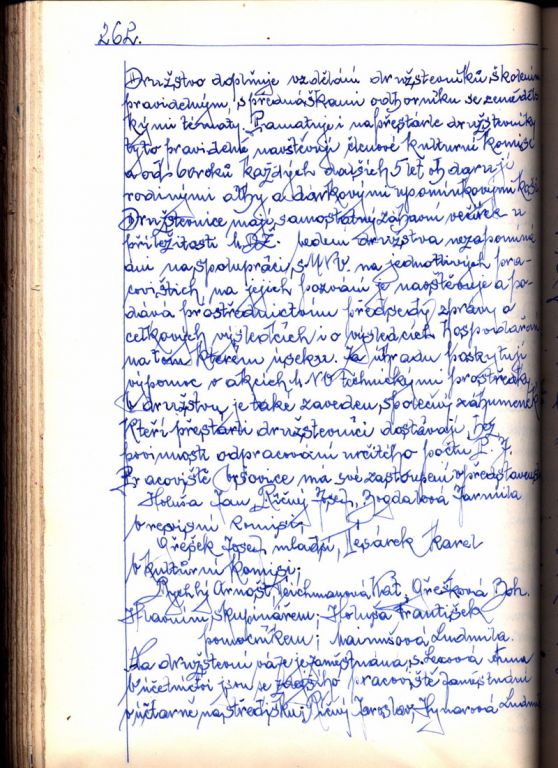 262.
Družstvo doplňuje vzdělání družstevníků školením
pravidelným, s přednáškami odborníku se zeměděls
kými tématy. Pamatuje i na přestárle družstevníky
tyto pravidelně navštěvují členové kulturní komise
a od 60 roků každých dalších 5 let obdarují
rodinnými alby a dárkovými upomínkovými
Družstevnice mají samostatný zábavní večírek u
příležitosti MDŽ. Vedení družstva nezapomíná
ani na spolupráci s MNV. na jednotlivých pra
covištích na jejich pozvání je navštěvuje a po-
dává prostřednictvím předsedy zprávy o
celkových výsledcích i o výsledcích hospodaření
na tom kterém úseku. Za úhradu poskytují
výpomoc v akcích MNV těhnickými prostředky.
V družstvu je také zaveden společný záhumenek
Kteří přestárlí družstevníci dostávají bez
povinnosti odpracování určitého počtu P.J.
Pracoviště Boršovice má své zastoupení v představenst
Holuša Jan, Říčný Josef, Bogdalová Jarmila
V revisní komisi:
Ořešek Josef mladší, Tesarek Karel
V kulturní komisi;
Rychlý Arnošt, Teichmanová Kat, Ořešková Boh.
Hlavním skupinářem; Holuša František
pomocníkem; Ludmila.
Na družstevní váze je zaměstnána, s. Lexová Anna
V účetnictví jsou ze zdejšího pracoviště zaměstnáni
v účtárně na středisku; Říčný Jaroslav, Hynarová Ludmil